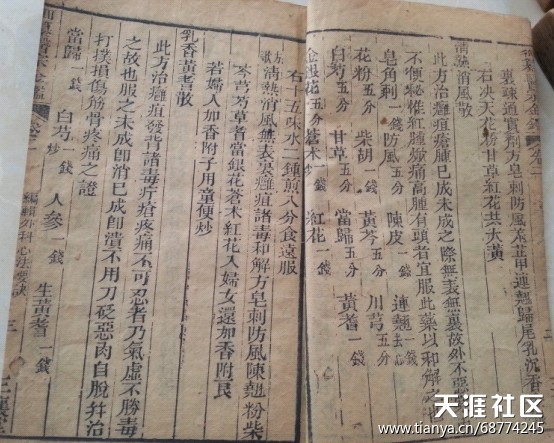 裏疎通實劑方皂刺防風羌甲連翹歸尾乳沉香
天花粉甘草紅花共大黃
清熱消風散
此方治癰疽瘡腫已成未成之際無表無裏故外不惡
不便秘惟紅腫焮痛高腫有頭者宜服此藥以和解之
皂角刺一錢 防風五分 陳皮一錢 連翹去心
花粉五分 柴胡一錢 黃芩五分 川芎五分
白芍五分 甘草五分 當歸五分 黃耆
金銀花 蒼朮炒 一錢 紅花五分
右十五味水二鍾煎八分食遠服
清熱消風無表裏癰疽諸毒和解方皂刺防風陳翹粉柴
芩芎芍草耆當銀花蒼朮紅花入婦女還加香附良
若婦人加香附子用童便炒
乳香黃耆散
此方治癰疽發背諸毒疔瘡疼痛不可忍者乃氣虛不勝毒
之故也服之未成即消已成即潰不用刀砭惡肉自脫并治
打撲損傷筋骨疼痛之證
當歸一錢 白芍炒 一錢 人參一錢 生黃耆一錢
編輯外科心法要訣 三
天涯社区
www.tianya.cn/68774245